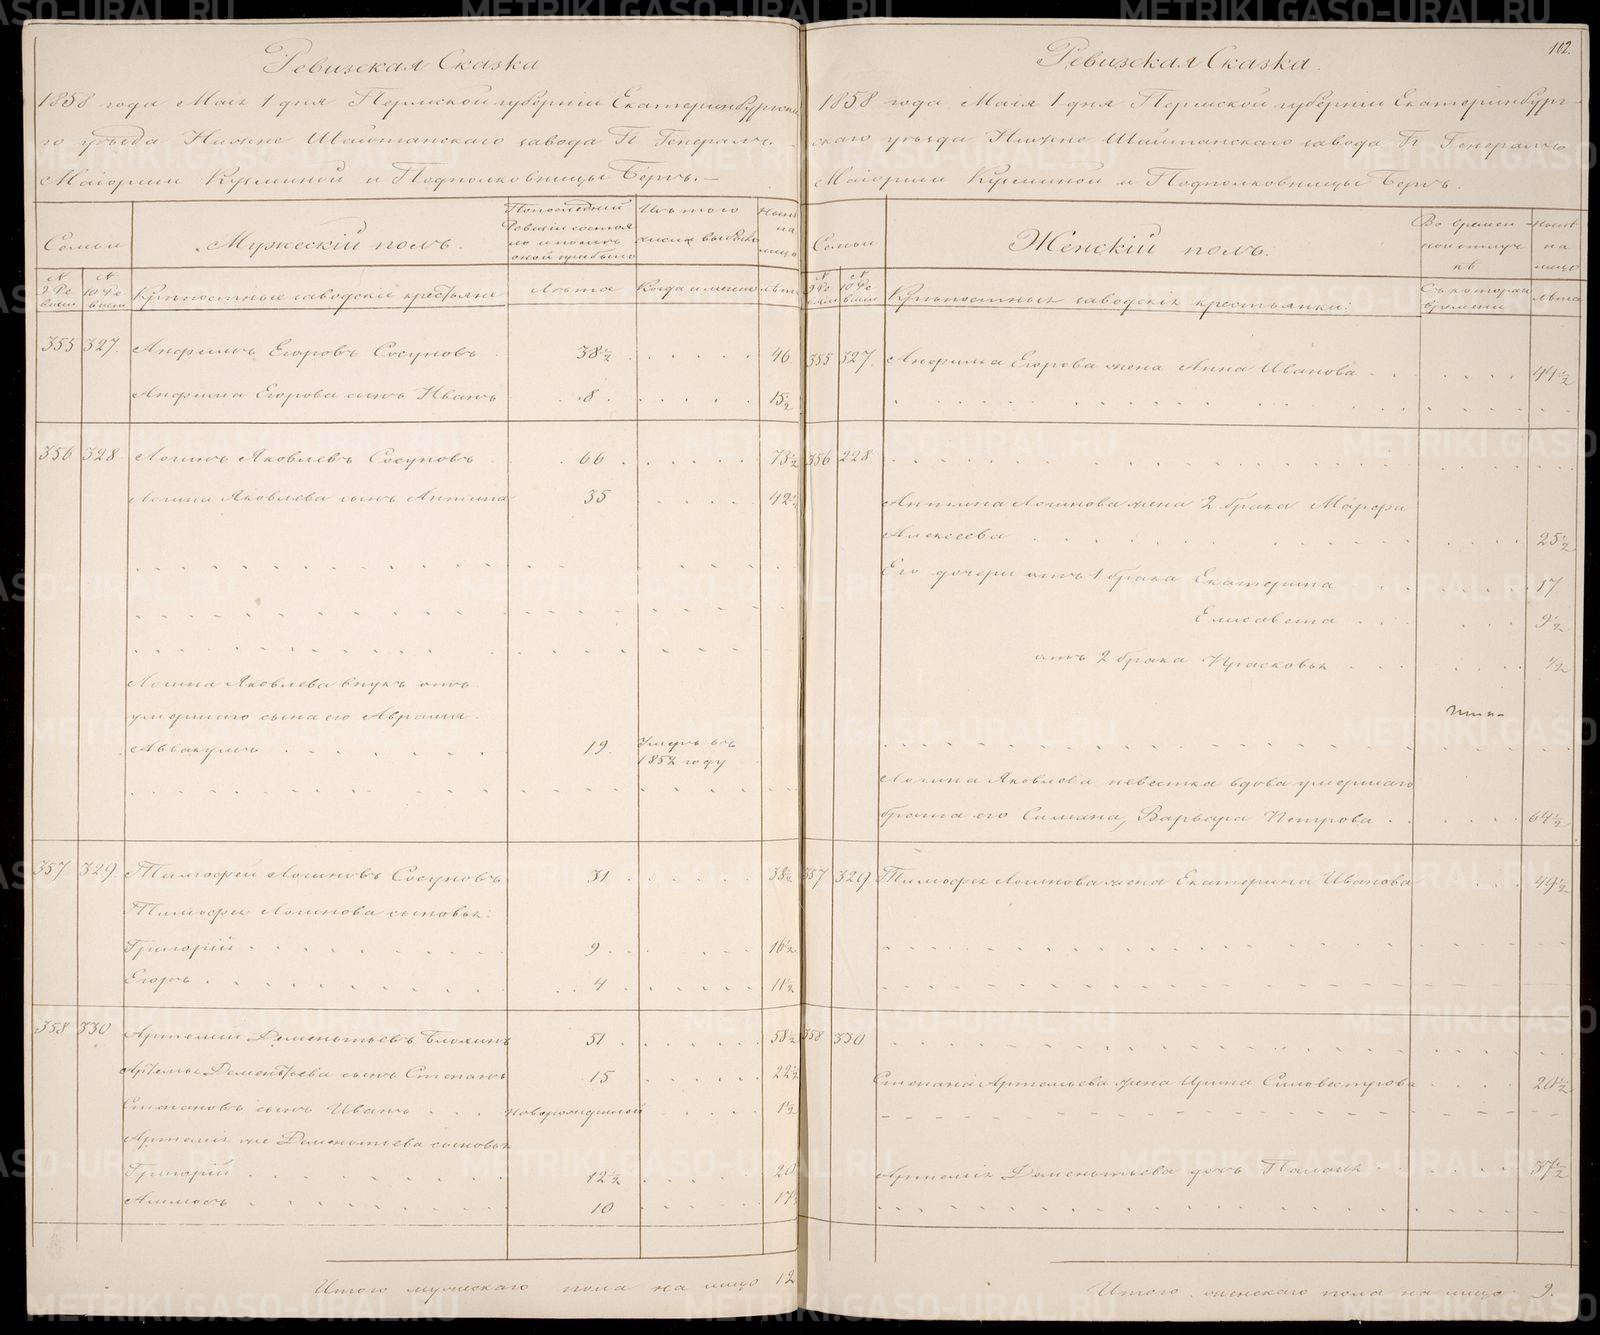 Ревизская Сказка
1858 года Маія 1 дня Пермской губерніи Екатеринбургска
го уезда Нижне Шайтанскаго завода Гг Генералъ
Маіорши Кузминой и Подполковницы Бергъ.—
Семьи
Мужескій полъ.
По последней Ревизіи состояло и после оной прибыло
Изъ того числа выбыло
Ныне на лицо
№ 9 Ревизіи
№ 10 Ревизіи
Крепостные заводскіе крестьяне
Лета
Когда именно
лета
355 327. Анфилъ Егоровъ Сосуновъ 38½ 46
Анфила Егорова сынъ Иванъ 8 15½
356 328 Логинъ Яковлевъ Сосуновъ 66 73½
Логина Яковлева сынъ Антипа 35 42½
Логина Яковлева внукъ отъ
умершаго сына его Авраама
Аввакумъ 19 Умеръ въ
1852 году
357 329 Тимофей Логиновъ Сосуновъ 31 38½
Тимофея Логинова сыновья:
Григорій 9 16½
Егоръ 4 11½
358 330 Артемій Дементьевъ Блохинъ 51 58½
Артемья Дементьева сынъ Степанъ 15 22½
Степановъ сынъ Иванъ новорожденной 1½
Артемія же Дементьева сыновья
Григорій 12½ 20
Алимпъ 10 17½
Итого мужескаго пола на лицо 12
102.
Ревизская Сказка.
1858 года Маія 1 дня Пермской губерніи Екатеринбург-
скаго уезда Нижне Шайтанскаго завода Гг Генералъ
Маіорши Кузминой и Подполковницы Бергъ.
Семьи
Женскій полъ.
Во временной отлучке
Ныне на лицо
№ 9 Ревизіи
№ 10 Ревизіи
Крепостныхъ заводскихъ крестьянки:
Съ котораго времени
Лета
355 327. Анфила Егорова жена Анна Иванова 44½
356 228
Антипа Логинова жена 2 брака Марфа
Алексеева 25½
Его дочери отъ 1 брака Екатерина 17
Елисавета 9½
отъ 2 брака Прасковья ½
Логина Яковлева невестка вдова умершаго
брата его Симеона, Варвара Петрова 64½
357 329 Тимофея Логинова жена Екатерина Иванова 49½
358 330
Степана Артемьева жена Ирина Силовестрова 20½
Артемія Дементьева дочь Палагея 37½
Итого женскаго пола на лицо 9.
METRIKI.GASO-URAL.RU